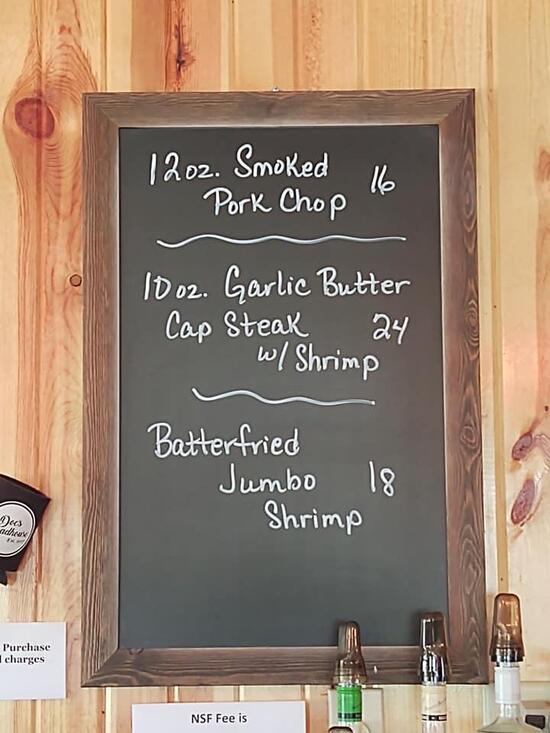 12oz. Smoked 16
Pork Chop
10oz. Garlic Butter
Cap Steak 24
w/ Shrimp
Batterfried
Jumbo 18
Shrimp
Docs
adhouse
Purchase
charges
NSF Fee is